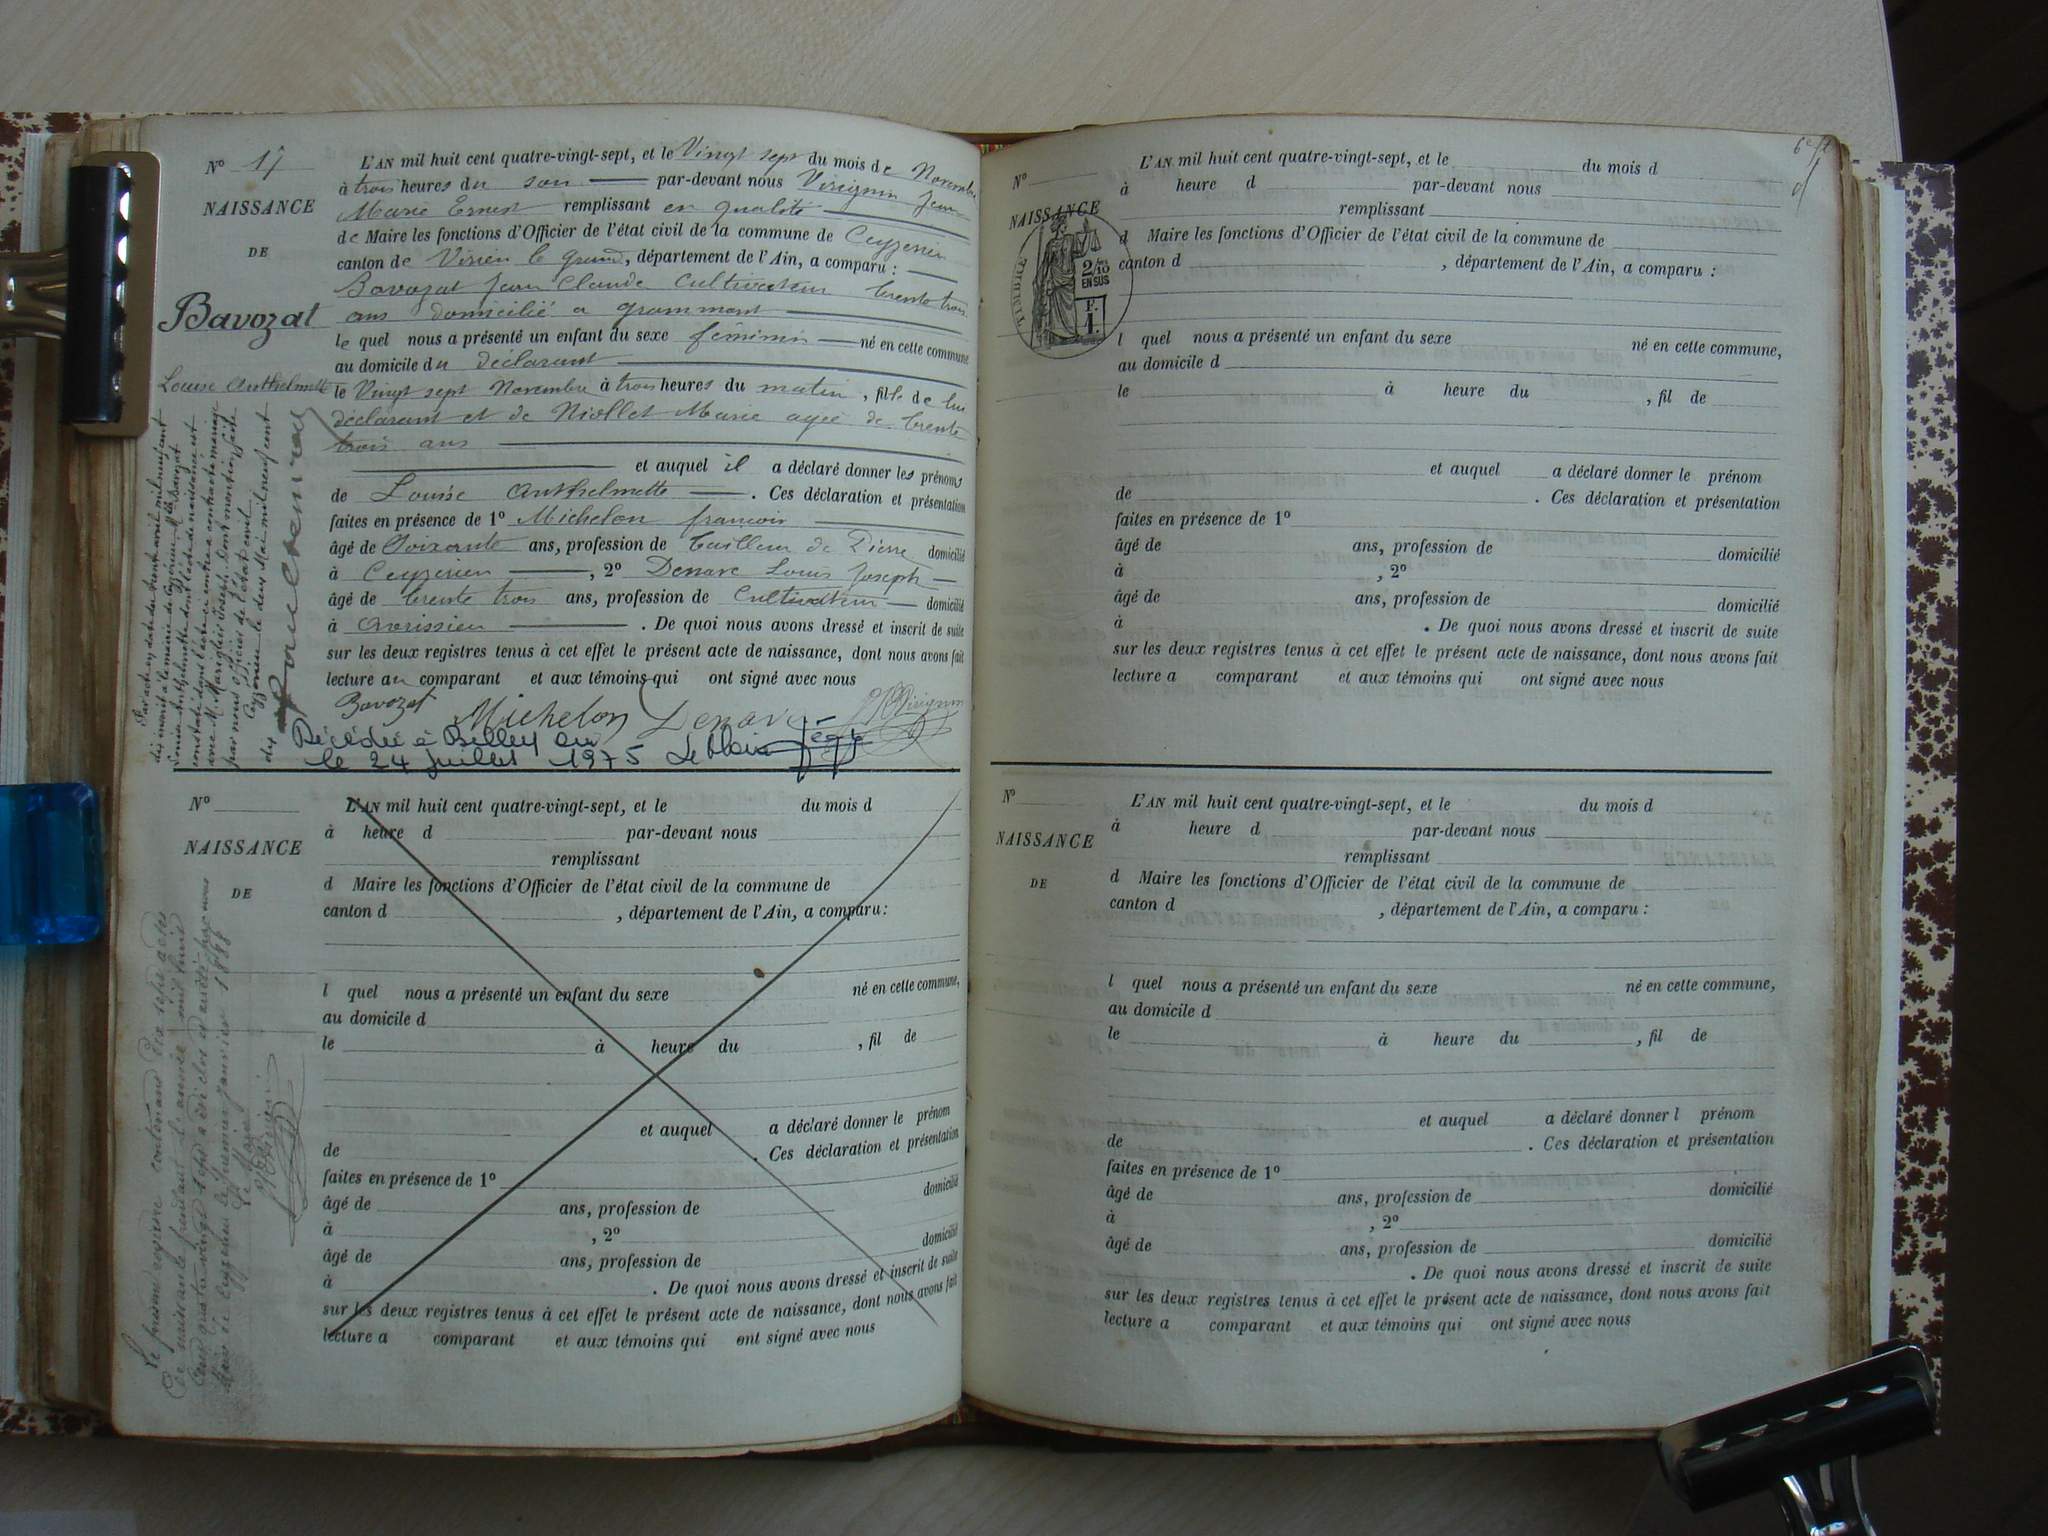 N° 17
NAISSANCE
DE
Bavozat
Louise Anthelmette
L'AN mil huit cent quatre-vingt-sept, et le Vingt sept du mois de Novembre
à trois heures du soir par-devant nous Virignin Jean
Marie Ernest remplissant en qualité
de Maire les fonctions d'Officier de l'état civil de la commune de Ceyzerieu
canton de Virieu le grand, département de l'Ain, a comparu :
Bavozat Jean Claude Cultivateur trente trois
ans domicilié a grammont
le quel nous a présenté un enfant du sexe féminin né en cette commune
au domicile du déclarant
le Vingt sept Novembre à trois heures du matin, fille de lui
déclarant et de Niollet Marie agée de trente
trois ans
et auquel il a déclaré donner les prénoms
de Louise Anthelmette . Ces déclaration et présentation
faites en présence de 1° Michelon françois
âgé de Soixante ans, profession de tailleur de Pierre domicilié
à Ceyzerieu , 2° Denare Louis Joseph
âgé de trente trois ans, profession de Cultivateur domicilié
à Avrissieu . De quoi nous avons dressé et inscrit de suite
sur les deux registres tenus à cet effet le présent acte de naissance, dont nous avons fait
lecture au comparant et aux témoins qui ont signé avec nous
Bavozat Michelon Denare Virignin
Décédée à Belley
le 24 Juillet 1975 Le Maire
Par acte en date du trente avril mil neuf cent
dix inscrit à la mairie de Ceyzérieu, Mlle Bavozat
Louise Anthelmette dont l'acte de naissance est
constaté dans l'acte ci contre a contracté mariage
avec M. Joseph. Dont mention faite
par nous officier de l'état civil.
Ceyzérieu le deux Mai mil neuf cent
dix
N°
NAISSANCE
DE
L'AN mil huit cent quatre-vingt-sept, et le du mois d
à heure d par-devant nous
remplissant
d Maire les fonctions d'Officier de l'état civil de la commune de
canton d , département de l'Ain, a comparu :
l quel nous a présenté un enfant du sexe né en cette commune,
au domicile d
le à heure du , fil de
et auquel a déclaré donner le prénom
de . Ces déclaration et présentation
faites en présence de 1°
âgé de ans, profession de domicilié
à , 2°
âgé de ans, profession de domicilié
à . De quoi nous avons dressé et inscrit de suite
sur les deux registres tenus à cet effet le présent acte de naissance, dont nous avons fait
lecture a comparant et aux témoins qui ont signé avec nous
Le présent registre contenant dix sept actes
de naissance pendant l'année mil huit
cent quatre vingt sept a été clos et arrêté par nous
Maire de Ceyzerieu le premier janvier 1888
Le Maire
N°
NAISSANCE
TIMBRE
2/10
EN SUS
F.
1.
L'AN mil huit cent quatre-vingt-sept, et le du mois d
à heure d par-devant nous
remplissant
d Maire les fonctions d'Officier de l'état civil de la commune de
canton d , département de l'Ain, a comparu :
l quel nous a présenté un enfant du sexe né en cette commune,
au domicile d
le à heure du , fil de
et auquel a déclaré donner le prénom
de . Ces déclaration et présentation
faites en présence de 1°
âgé de ans, profession de domicilié
à , 2°
âgé de ans, profession de domicilié
à . De quoi nous avons dressé et inscrit de suite
sur les deux registres tenus à cet effet le présent acte de naissance, dont nous avons fait
lecture a comparant et aux témoins qui ont signé avec nous
N°
NAISSANCE
DE
L'AN mil huit cent quatre-vingt-sept, et le du mois d
à heure d par-devant nous
remplissant
d Maire les fonctions d'Officier de l'état civil de la commune de
canton d , département de l'Ain, a comparu :
l quel nous a présenté un enfant du sexe né en cette commune,
au domicile d
le à heure du , fil de
et auquel a déclaré donner l prénom
de . Ces déclaration et présentation
faites en présence de 1°
âgé de ans, profession de domicilié
à , 2°
âgé de ans, profession de domicilié
. De quoi nous avons dressé et inscrit de suite
sur les deux registres tenus à cet effet le présent acte de naissance, dont nous avons fait
lecture a comparant et aux témoins qui ont signé avec nous